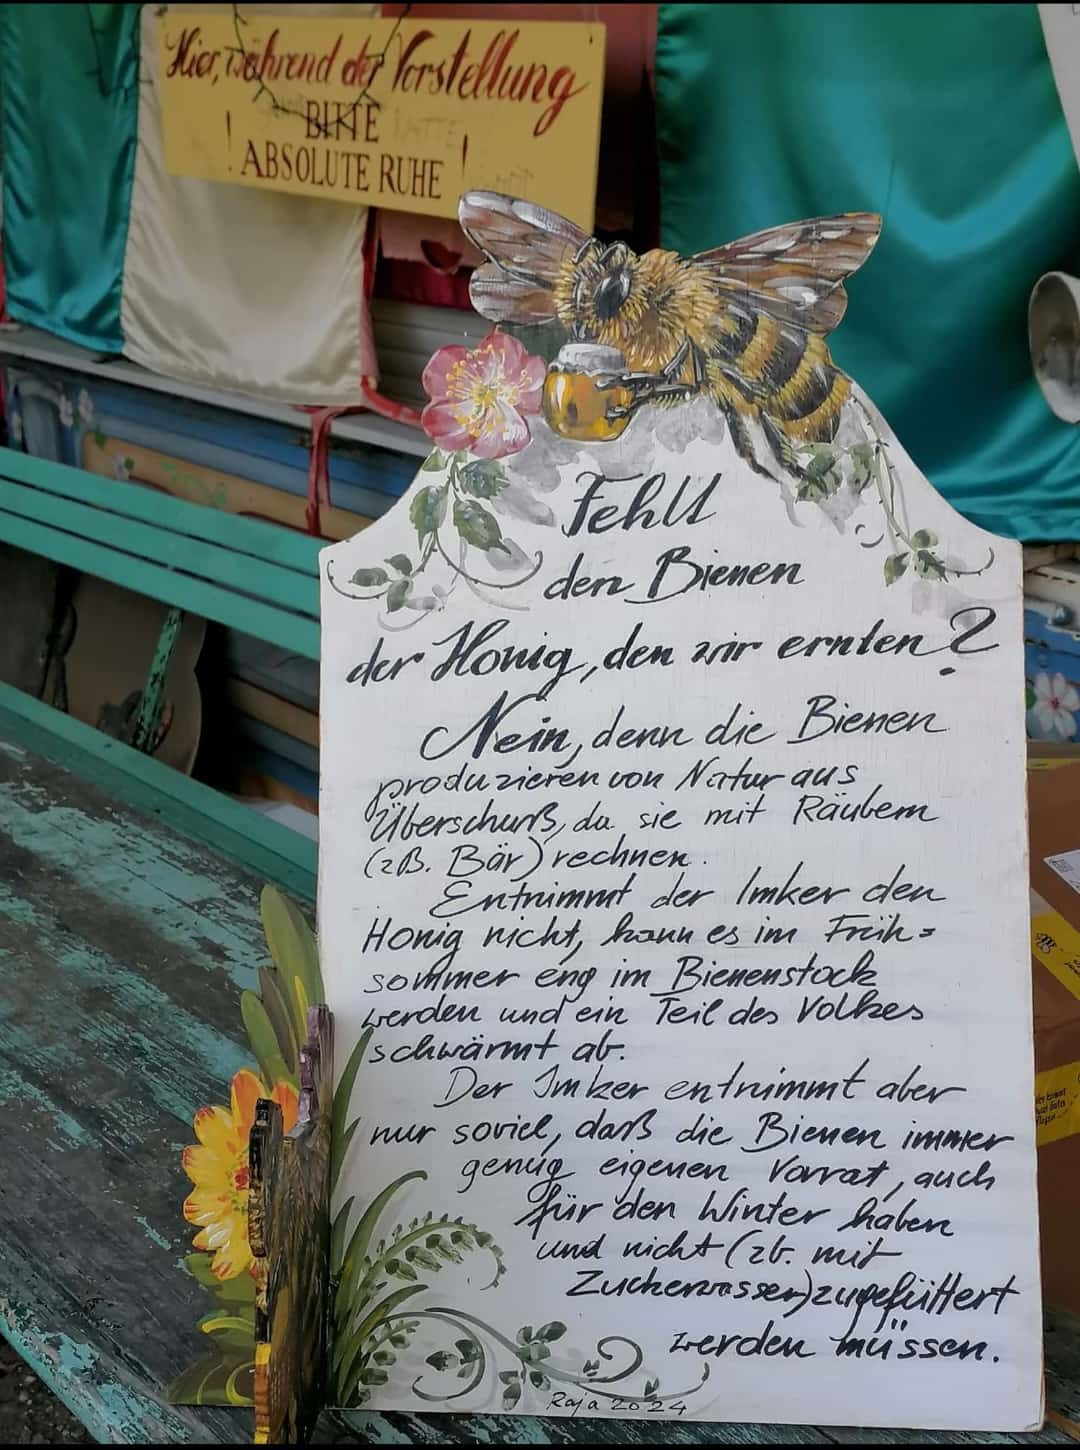 Hier, während der Vorstellung
BITTE
! ABSOLUTE RUHE !
Fehlt
den Bienen
der Honig, den wir ernten?
Nein, denn die Bienen
produzieren von Natur aus
Überschuß, da sie mit Räubern
(zB. Bär) rechnen.
Entnimmt der Imker den
Honig nicht, kann es im Früh=
sommer eng im Bienenstock
werden und ein Teil des Volkes
schwärmt ab.
Der Imker entnimmt aber
nur soviel, daß die Bienen immer
genug eigenen Vorrat, auch
für den Winter haben
und nicht (zb. mit
Zuckerwasser) zugefüttert
werden müssen.
Raja 2024